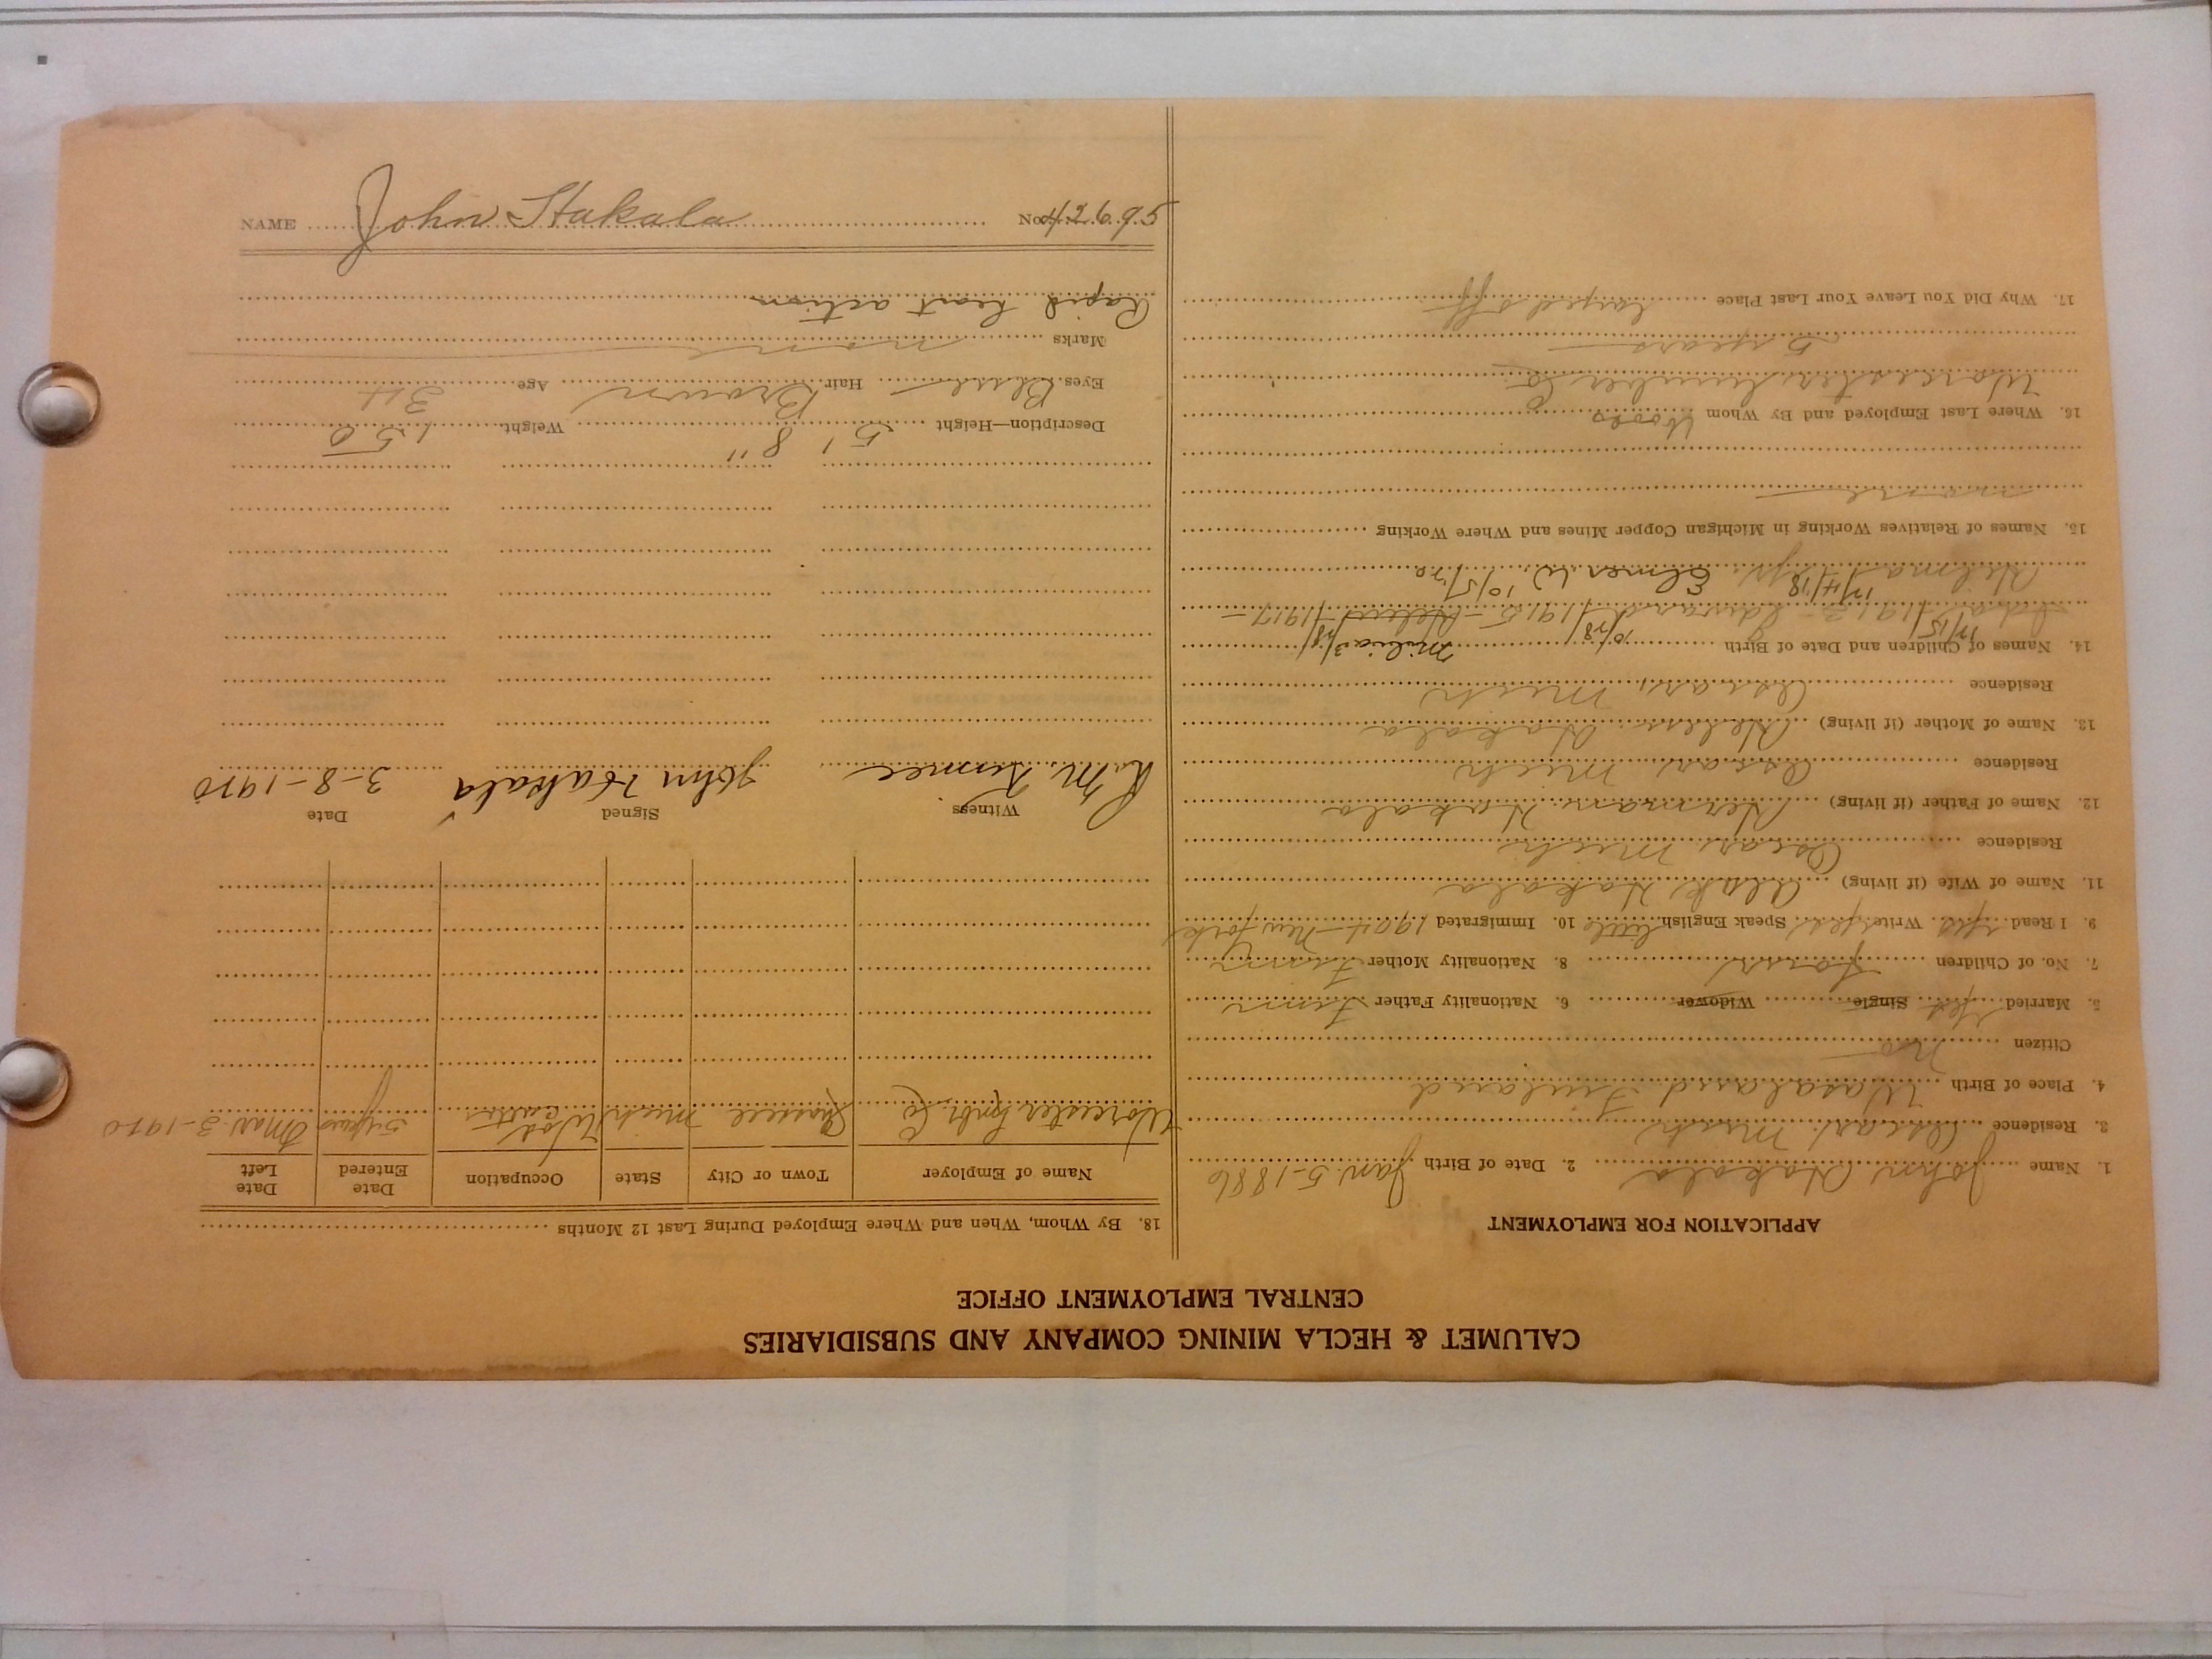 CALUMET & HECLA MINING COMPANY AND SUBSIDIARIES
CENTRAL EMPLOYMENT OFFICE
APPLICATION FOR EMPLOYMENT
1. Name John Hakala 2. Date of Birth Jan. 5-1886
3. Residence Oscar, Mich
4. Place of Birth Wasaland Finland
Citizen no
5. Married Yes Single Widower 6. Nationality Father Finn
7. No. of Children four 8. Nationality Mother Finn
9. I Read yes Write yes Speak English little 10. Immigrated 1904 - New York
11. Name of Wife (if living) Hakala
Residence Oscar Mich
12. Name of Father (if living) Herman Hakala
Residence Oscar Mich
13. Name of Mother (if living) Helen Hakala
Residence Oscar, Mich
14. Names of Children and Date of Birth
1913 - Edward 1915 - 1917 -
Elmer W. 10/5/20
15. Names of Relatives Working in Michigan Copper Mines and Where Working
none
16. Where Last Employed and By Whom Woods
Worcester Lumber Co
5 years
17. Why Did You Leave Your Last Place layed off
18. By Whom, When and Where Employed During Last 12 Months
Name of Employer Town or City State Occupation Date Entered Date Left
Worcester Lmbr. Co Mich 5 years Mar. 3-1920
Witness Signed Date
John Hakala 3-8-1920
Description—Height 5' 8" Weight 150
Eyes Blue Hair Brown Age 34
Marks none
Rapid heart action
NAME John Hakala No. 42695